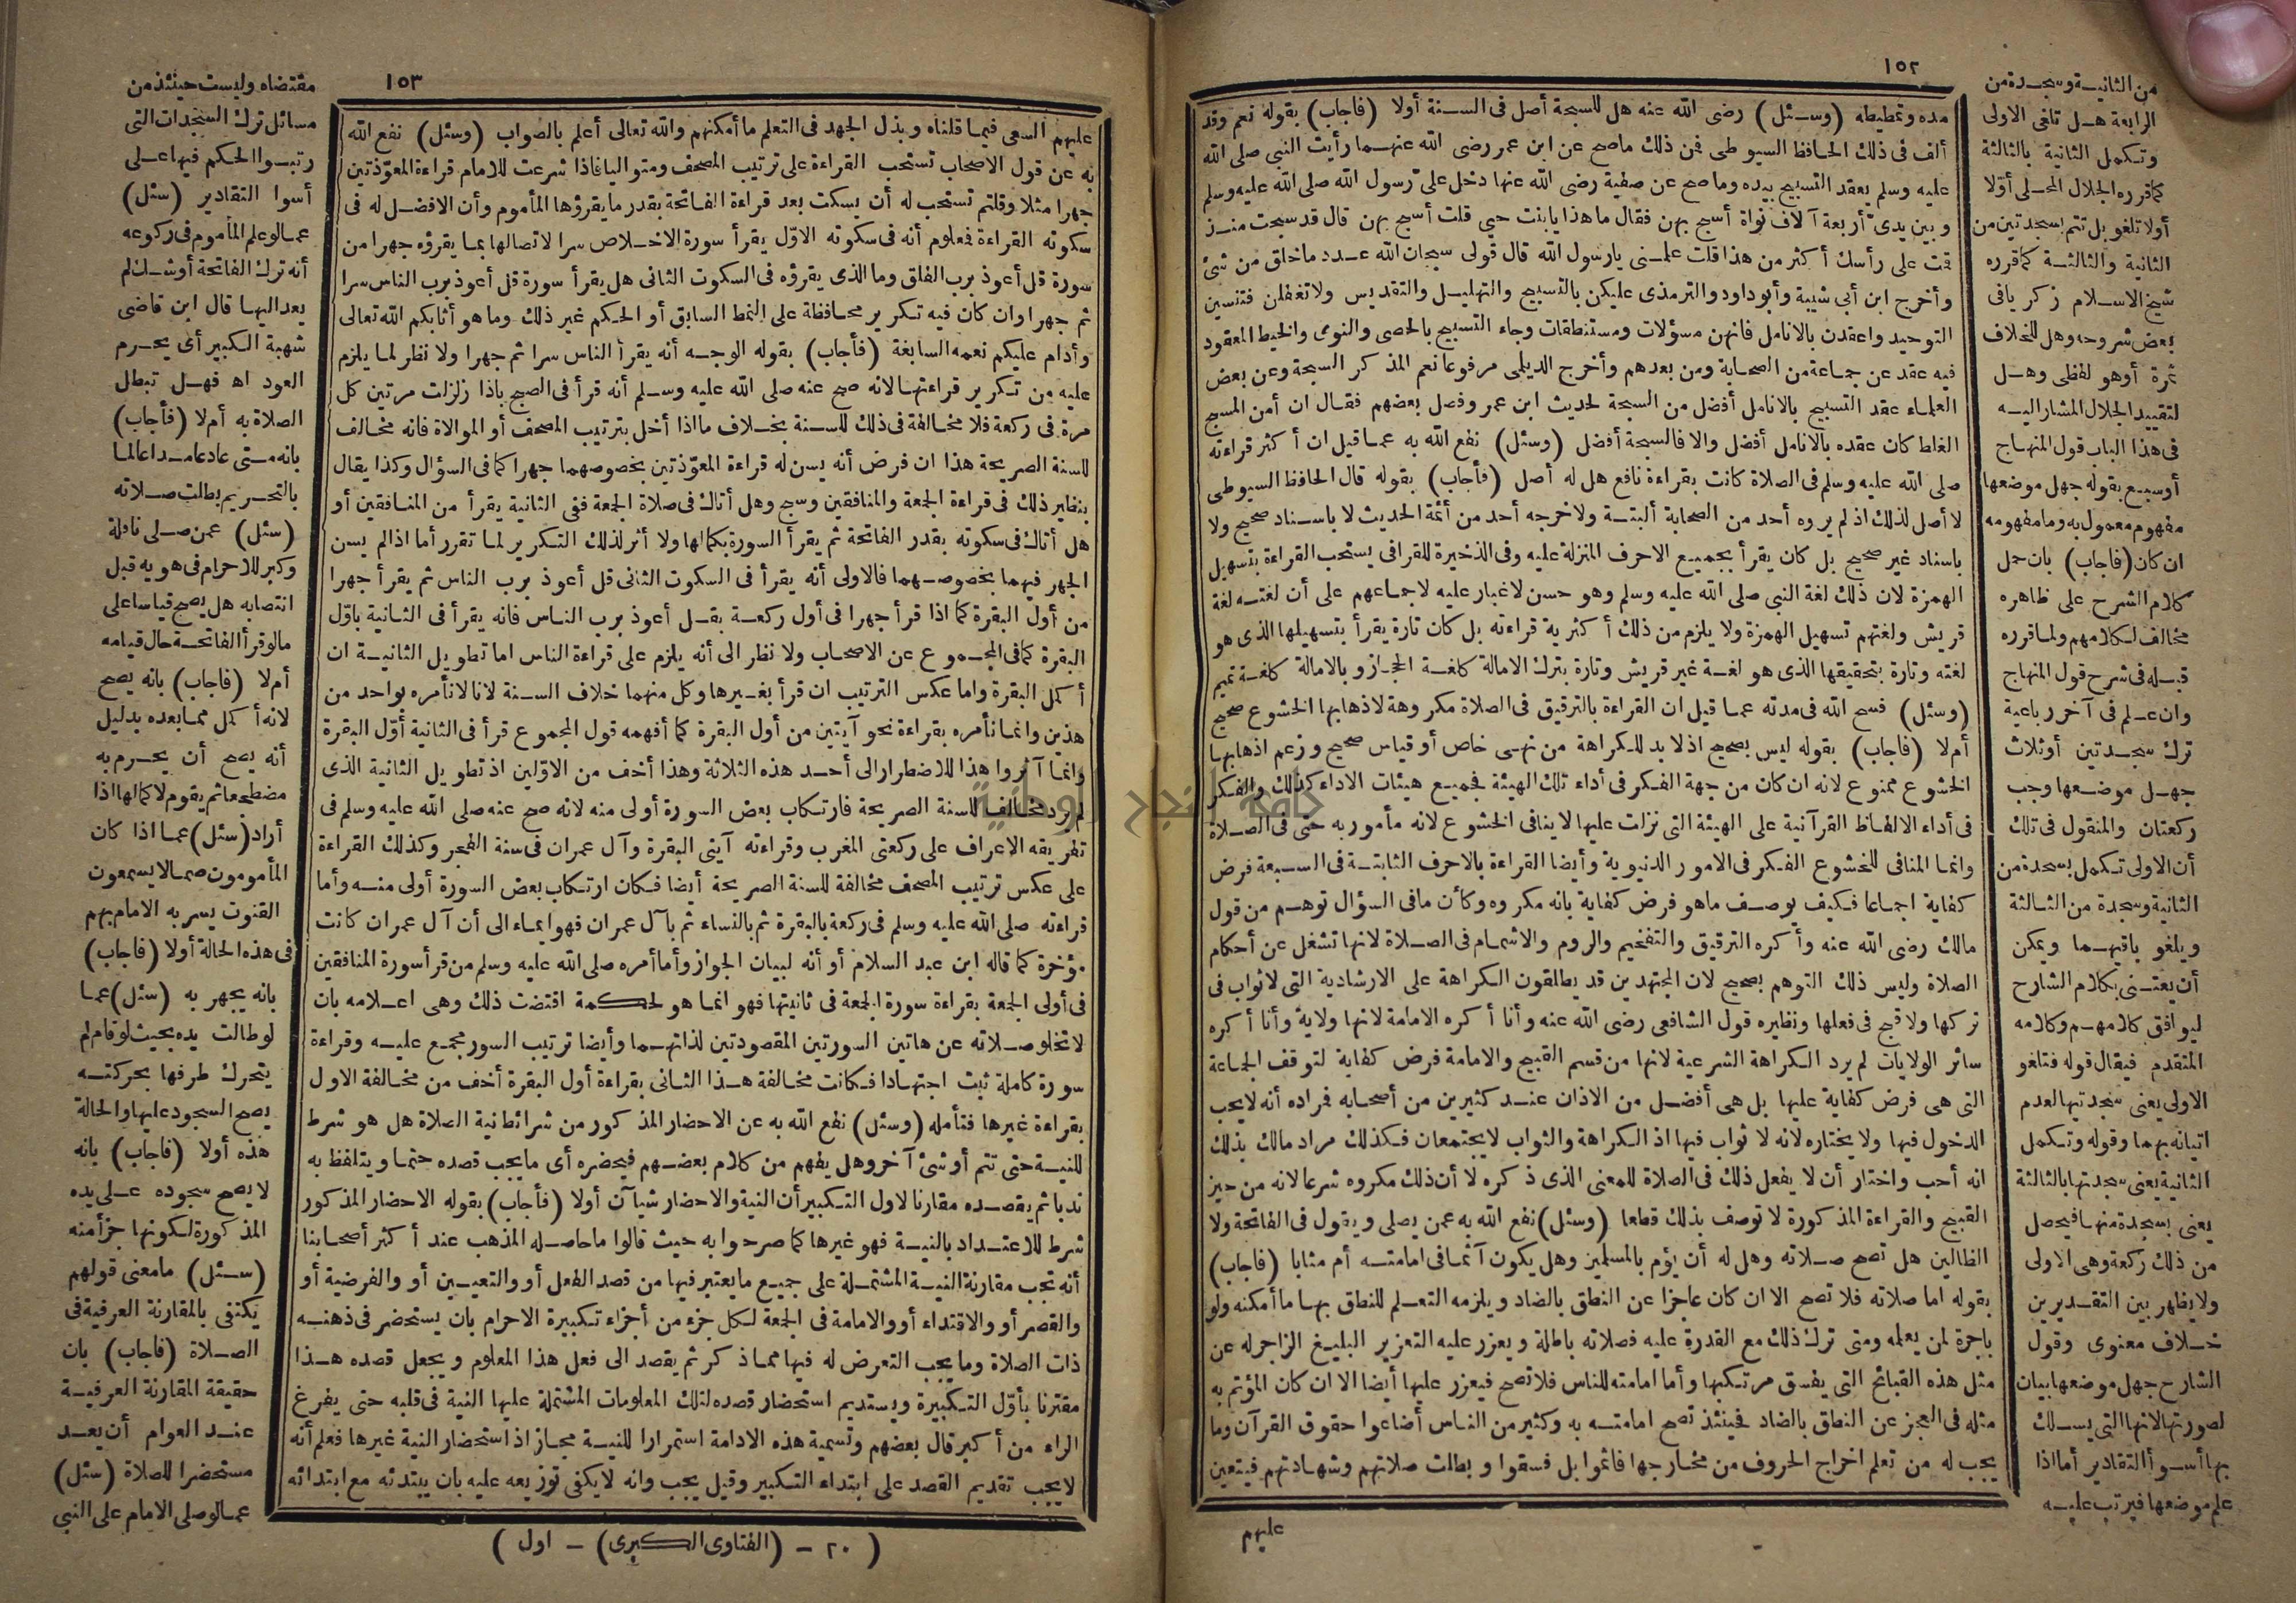 ١٥٢
مده وتمطيطه (وسئل) رضى الله عنه هل للسبحة أصل فى السنة أولا (فاجاب) بقوله نعم وقد
ألف فى ذلك الحافظ السيوطى فمن ذلك ماصح عن ابن عمر رضى الله عنهما رأيت النبى صلى الله
عليه وسلم يعقد التسبيح بيده وماصح عن صفية رضى الله عنها دخل علىّ رسول الله صلى الله عليه وسلم
وبين يدىّ أربعة آلاف نواة أسبح بهن فقال ماهذا يا بنت حيي قلت أسبح بهن قال قد سبحت منذ
قمت على رأسك أكثر من هذا قلت علمنى يارسول الله قال قولى سبحان الله عدد ماخلق من شئ
وأخرج ابن أبى شيبة وأبوداود والترمذى عليكن بالتسبيح والتهليل والتقديس ولاتغفلن فتنسين
التوحيد واعقدن بالانامل فانهن مسؤلات ومستنطقات وجاء التسبيح بالحصى والنوى والخيط المعقود
فيه عقد عن جماعة من الصحابة ومن بعدهم وأخرج الديلمى مرفوعا نعم المذكر السبحة وعن بعض
العلماء عقد التسبيح بالانامل أفضل من السبحة لحديث ابن عمر وفصل بعضهم فقال ان أمن المسبح
الغلط كان عقده بالانامل أفضل والا فالسبحة أفضل (وسئل) نفع الله به عما قيل ان أكثر قراءته
صلى الله عليه وسلم فى الصلاة كانت بقراءة نافع هل له أصل (فأجاب) بقوله قال الحافظ السيوطى
لا أصل لذلك اذ لم يروه أحد من الصحابة ألبتة ولاخرجه أحد من أئمة الحديث لا باسناد صحيح ولا
باسناد غير صحيح بل كان يقرأ بجميع الاحرف المنزلة عليه وفى الذخيرة للقرافى يستحب القراءة بتسهيل
الهمزة لان ذلك لغة النبى صلى الله عليه وسلم وهو حسن لاغبار عليه لاجماعهم على أن لغته لغة
قريش ولغتهم تسهيل الهمزة ولا يلزم من ذلك أكثرية قراءته بل كان تارة يقرأ بتسهيلها الذى هو
لغته وتارة بتحقيقها الذى هو لغة غير قريش وتارة بترك الامالة كلغة الحجاز وبالامالة كلغة تميم
(وسئل) فسح الله فى مدته عما قيل ان القراءة بالترقيق فى الصلاة مكروهة لاذهابها الخشوع صحيح
أم لا (فاجاب) بقوله ليس بصحيح اذ لابد للكراهة من نهى خاص أو قياس صحيح وزعم اذهابها
الخشوع ممنوع لانه ان كان من جهة الفكر فى أداء تلك الهيئة فجميع هيئات الاداء كذلك والفكر
فى أداء الالفاظ القرآنية على الهيئة التى نزلت عليها لا ينافى الخشوع لانه مأمور به حتى فى الصلاة
وانما المنافى للخشوع الفكر فى الامور الدنيوية وأيضا القراءة بالاحرف الثابتة فى السبعة فرض
كفاية اجماعا فكيف يوصف ماهو فرض كفاية بانه مكروه وكأن مافى السؤال توهم من قول
مالك رضى الله عنه وأكره الترقيق والتفخيم والروم والاشمام فى الصلاة لانها تشغل عن أحكام
الصلاة وليس ذلك التوهم بصحيح لان المجتهدين قد يطلقون الكراهة على الارشادية التى لاثواب فى
تركها ولا قبح فى فعلها ونظيره قول الشافعى رضى الله عنه وأنا أكره الامامة لانها ولاية وأنا أكره
سائر الولايات لم يرد الكراهة الشرعية لانها من قسم القبيح والامامة فرض كفاية لتوقف الجماعة
التى هى فرض كفاية عليها بل هى أفضل من الاذان عند كثيرين من أصحابه فراده أنه لايحب
الدخول فيها ولا يختاره لانه لا ثواب فيها اذ الكراهة والثواب لايجتمعان فكذلك مراد مالك بذلك
انه أحب واختار أن لا يفعل ذلك فى الصلاة للمعنى الذى ذكره لا أن ذلك مكروه شرعا لانه من حيز
القبيح والقراءة المذكورة لا توصف بذلك قطعا (وسئل) نفع الله به عمن يصلى ويقول فى الفاتحة ولا
الظالين هل تصح صلاته وهل له أن يؤم بالمسلمين وهل يكون آثما فى امامته أم مثابا (فاجاب)
بقوله اما صلاته فلا تصح الا ان كان عاجزا عن النطق بالضاد ويلزمه التعلم للنطق بها ما أمكنه ولو
باجرة لمن يعلمه ومتى ترك ذلك مع القدرة عليه فصلاته باطلة ويعزر عليه التعزير البليغ الزاجر له عن
مثل هذه القبائح التى يفسق مرتكبها وأما امامته للناس فلا تصح فيعزر عليها أيضا الا ان كان المؤتم به
مثله فى العجز عن النطق بالضاد فحينئذ تصح امامته به وكثير من الناس أضاعوا حقوق القرآن وما
يجب له من تعلم اخراج الحروف من مخارجها فاثموا بل فسقوا و بطلت صلاتهم وشهادتهم فيتعين
عليهم
من الثانية وسجدة من
الرابعة هل تلغى الاولى
وتكمل الثانية بالثالثة
كما قرره الجلال المحلى أوّلا
أولا تلغو بل تتم بسجدتين من
الثانية والثالثة كما قرره
شيخ الاسلام زكريا فى
بعض شروحه وهل للخلاف
ثمرة أوهو لفظى وهل
لتقييد الجلال المشار اليه
فى هذا الباب قول المنهاج
أوسبع بقوله جهل موضعها
مفهوم معمول به ومامفهومه
ان كان (فاجاب) بان حمل
كلام الشرح على ظاهره
مخالف لكلامهم ولما قرره
قبله فى شرح قول المنهاج
وان علم فى آخر رباعية
ترك سجدتين أوثلاث
جهل موضعها وجب
ركعتان والمنقول فى تلك
أن الاولى تكمل بسجدة من
الثانية وسجدة من الثالثة
ويلغو باقيهما ويمكن
أن يعتنى بكلام الشارح
ليوافق كلامهم وكلامه
المتقدم فيقال قوله فتلغو
الاولى يعنى سجدتيها لعدم
اتيانه بهما وقوله وتكمل
الثانية يعنى سجدتها بالثالثة
يعنى بسجدة منها فيحصل
من ذلك ركعة وهى الاولى
ولا يظهر بين التقديرين
خلاف معنوى وقول
الشارح جهل موضعها بيان
لصورتها لانها التى يسلك
بها أسوأ التقادير أما اذا
علم موضعها فيرتب عليه
١٥٣
عليهم السعى فيما قلناه وبذل الجهد فى التعلم ما أمكنهم والله تعالى أعلم بالصواب (وسئل) نفع الله
به عن قول الاصحاب تستحب القراءة على ترتيب المصحف ومتواليا فاذا شرعت للامام قراءة المعوّذتين
جهرا مثلا وقلتم تستحب له أن يسكت بعد قراءة الفاتحة بقدر ما يقرؤها المأموم وأن الافضل له فى
سكوته القراءة فمعلوم أنه فى سكوته الاوّل يقرأ سورة الاخلاص سرا لاتصالها بما يقرؤه جهرا من
سورة قل أعوذ برب الفلق وما الذى يقرؤه فى السكوت الثانى هل يقرأ سورة قل أعوذ برب الناس سرا
ثم جهرا وان كان فيه تكرير محافظة على النمط السابق أو الحكم غير ذلك وما هو أثابكم الله تعالى
وأدام عليكم نعمه السابغة (فأجاب) بقوله الوجه أنه يقرأ الناس سرا ثم جهرا ولا نظر لما يلزم
عليه من تكرير قراءتها لانه صح عنه صلى الله عليه وسلم أنه قرأ فى الصبح باذا زلزلت مرتين كل
مرة فى ركعة فلا مخالفة فى ذلك للسنة بخلاف ما اذا أخل بترتيب المصحف أو الموالاة فانه مخالف
للسنة الصريحة هذا ان فرض أنه يسن له قراءة المعوّذتين بخصوصهما جهرا كما فى السؤال وكذا يقال
بنظير ذلك فى قراءة الجمعة والمنافقين وسبح وهل أتاك فى صلاة الجمعة ففى الثانية يقرأ من المنافقين أو
هل أتاك فى سكوته بقدر الفاتحة ثم يقرأ السورة بكمالها ولا أثر لذلك التكرير لما تقرر أما اذا لم يسن
الجهر فيهما بخصوصهما فالاولى أنه يقرأ فى السكوت الثانى قل أعوذ برب الناس ثم يقرأ جهرا
من أول البقرة كما اذا قرأ جهرا فى أول ركعة بقل أعوذ برب الناس فانه يقرأ فى الثانية باوّل
البقرة كما فى المجموع عن الاصحاب ولا نظر الى أنه يلزم على قراءة الناس اما تطويل الثانية ان
أكمل البقرة واما عكس الترتيب ان قرأ بغيرها وكل منهما خلاف السنة لانا لا نأمره بواحد من
هذين وانما نأمره بقراءة نحو آيتين من أول البقرة كما أفهمه قول المجموع قرأ فى الثانية أوّل البقرة
وانما آثروا هذا للاضطرار الى أحد هذه الثلاثة وهذا أخف من الاوّلين اذ تطويل الثانية الذى
لم يرد مخالف للسنة الصريحة فارتكاب بعض السورة أولى منه لانه صح عنه صلى الله عليه وسلم فى
تفريقه الاعراف على ركعتى المغرب وقراءته آيتى البقرة وآل عمران فى سنة الفجر وكذلك القراءة
على عكس ترتيب المصحف مخالفة للسنة الصريحة أيضا فكان ارتكاب بعض السورة أولى منه وأما
قراءته صلى الله عليه وسلم فى ركعة بالبقرة ثم بالنساء ثم بآل عمران فهو ايماء الى أن آل عمران كانت
مؤخرة كما قاله ابن عبد السلام أو أنه لبيان الجواز وأما أمره صلى الله عليه وسلم من قرأ سورة المنافقين
فى أولى الجمعة بقراءة سورة الجمعة فى ثانيتها فهو انما هو لحكمة اقتضت ذلك وهى اعلامه بان
لا تخلو صلاته عن هاتين السورتين المقصودتين لذاتهما وأيضا ترتيب السور مجمع عليه وقراءة
سورة كاملة ثبت اجتهادا فكانت مخالفة هذا الثانى بقراءة أول البقرة أخف من مخالفة الاول
بقراءة غيرها فتأمله (وسئل) نفع الله به عن الاحضار المذكور من شرائط نية الصلاة هل هو شرط
للنية حتى تتم أو شئ آخر وهل يفهم من كلام بعضهم فيحضره أى مايجب قصده حتما ويتلفظ به
ندبا ثم يقصده مقارنا لاول التكبير أن النية والاحضار شيآن أولا (فأجاب) بقوله الاحضار المذكور
شرط للاعتداد بالنية فهو غيرها كما صرحوا به حيث قالوا ما حاصله المذهب عند أكثر أصحابنا
أنه تجب مقارنة النية المشتملة على جميع مايعتبر فيها من قصد الفعل أو والتعيين أو والفرضية أو
والقصر أو والاقتداء أو والامامة فى الجمعة لكل جزء من أجزاء تكبيرة الاحرام بان يستحضر فى ذهنه
ذات الصلاة وما يجب التعرض له فيها مما ذكر ثم يقصد الى فعل هذا المعلوم ويجعل قصده هذا
مقترنا بأوّل التكبيرة ويستديم استحضار قصده لتلك المعلومات المشتملة عليها النية فى قلبه حتى يفرغ
الراء من أكبر قال بعضهم وتسمية هذه الادامة استمرارا للنية مجاز اذ استحضار النية غيرها فعلم أنه
لايجب تقديم القصد على ابتداء التكبير وقيل يجب وانه لايكفى توزيعه عليه بان يبتدئه مع ابتدائه
( ٢٠ - (الفتاوى الكبرى) - اول )
مقتضاه وليست حينئذ من
مسائل ترك السجدات التى
رتبوا الحكم فيها على
أسوا التقادير (سئل)
عما لو علم المأموم فى ركوعه
أنه ترك الفاتحة أوشك لم
يعد اليها قال ابن قاضى
شهبة الكبير أى يحرم
العود اه فهل تبطل
الصلاة به أم لا (فأجاب)
بانه متى عاد عامدا عالما
بالتحريم بطلت صلاته
(سئل) عمن صلى نافلة
وكبر للاحرام فى هويه قبل
انتصابه هل يصح قياسا على
مالو قرأ الفاتحة حال قيامه
أم لا (فاجاب) بانه يصح
لانه أكمل مما بعده بدليل
أنه يصح أن يحرم به
مضطجعا ثم يقوم لاكمالها اذا
أراد (سئل) عما اذا كان
المأمومون صما لا يسمعون
القنوت يسر به الامام بهم
فى هذه الحالة أولا (فاجاب)
بانه يجهر به (سئل) عما
لو طالت يده بحيث لو قام لم
يتحرك طرفها بحركته
يصح السجود عليها والحالة
هذه أولا (فاجاب) بانه
لا يصح سجوده على يده
المذكورة لكونها جزأ منه
(سئل) مامعنى قولهم
يكتفى بالمقارنة العرفية فى
الصلاة (فاجاب) بان
حقيقة المقارنة العرفية
عند العوام أن يعد
مستحضرا للصلاة (سئل)
عما لو صلى الامام على النبى
جامعة النجاح الوطنية